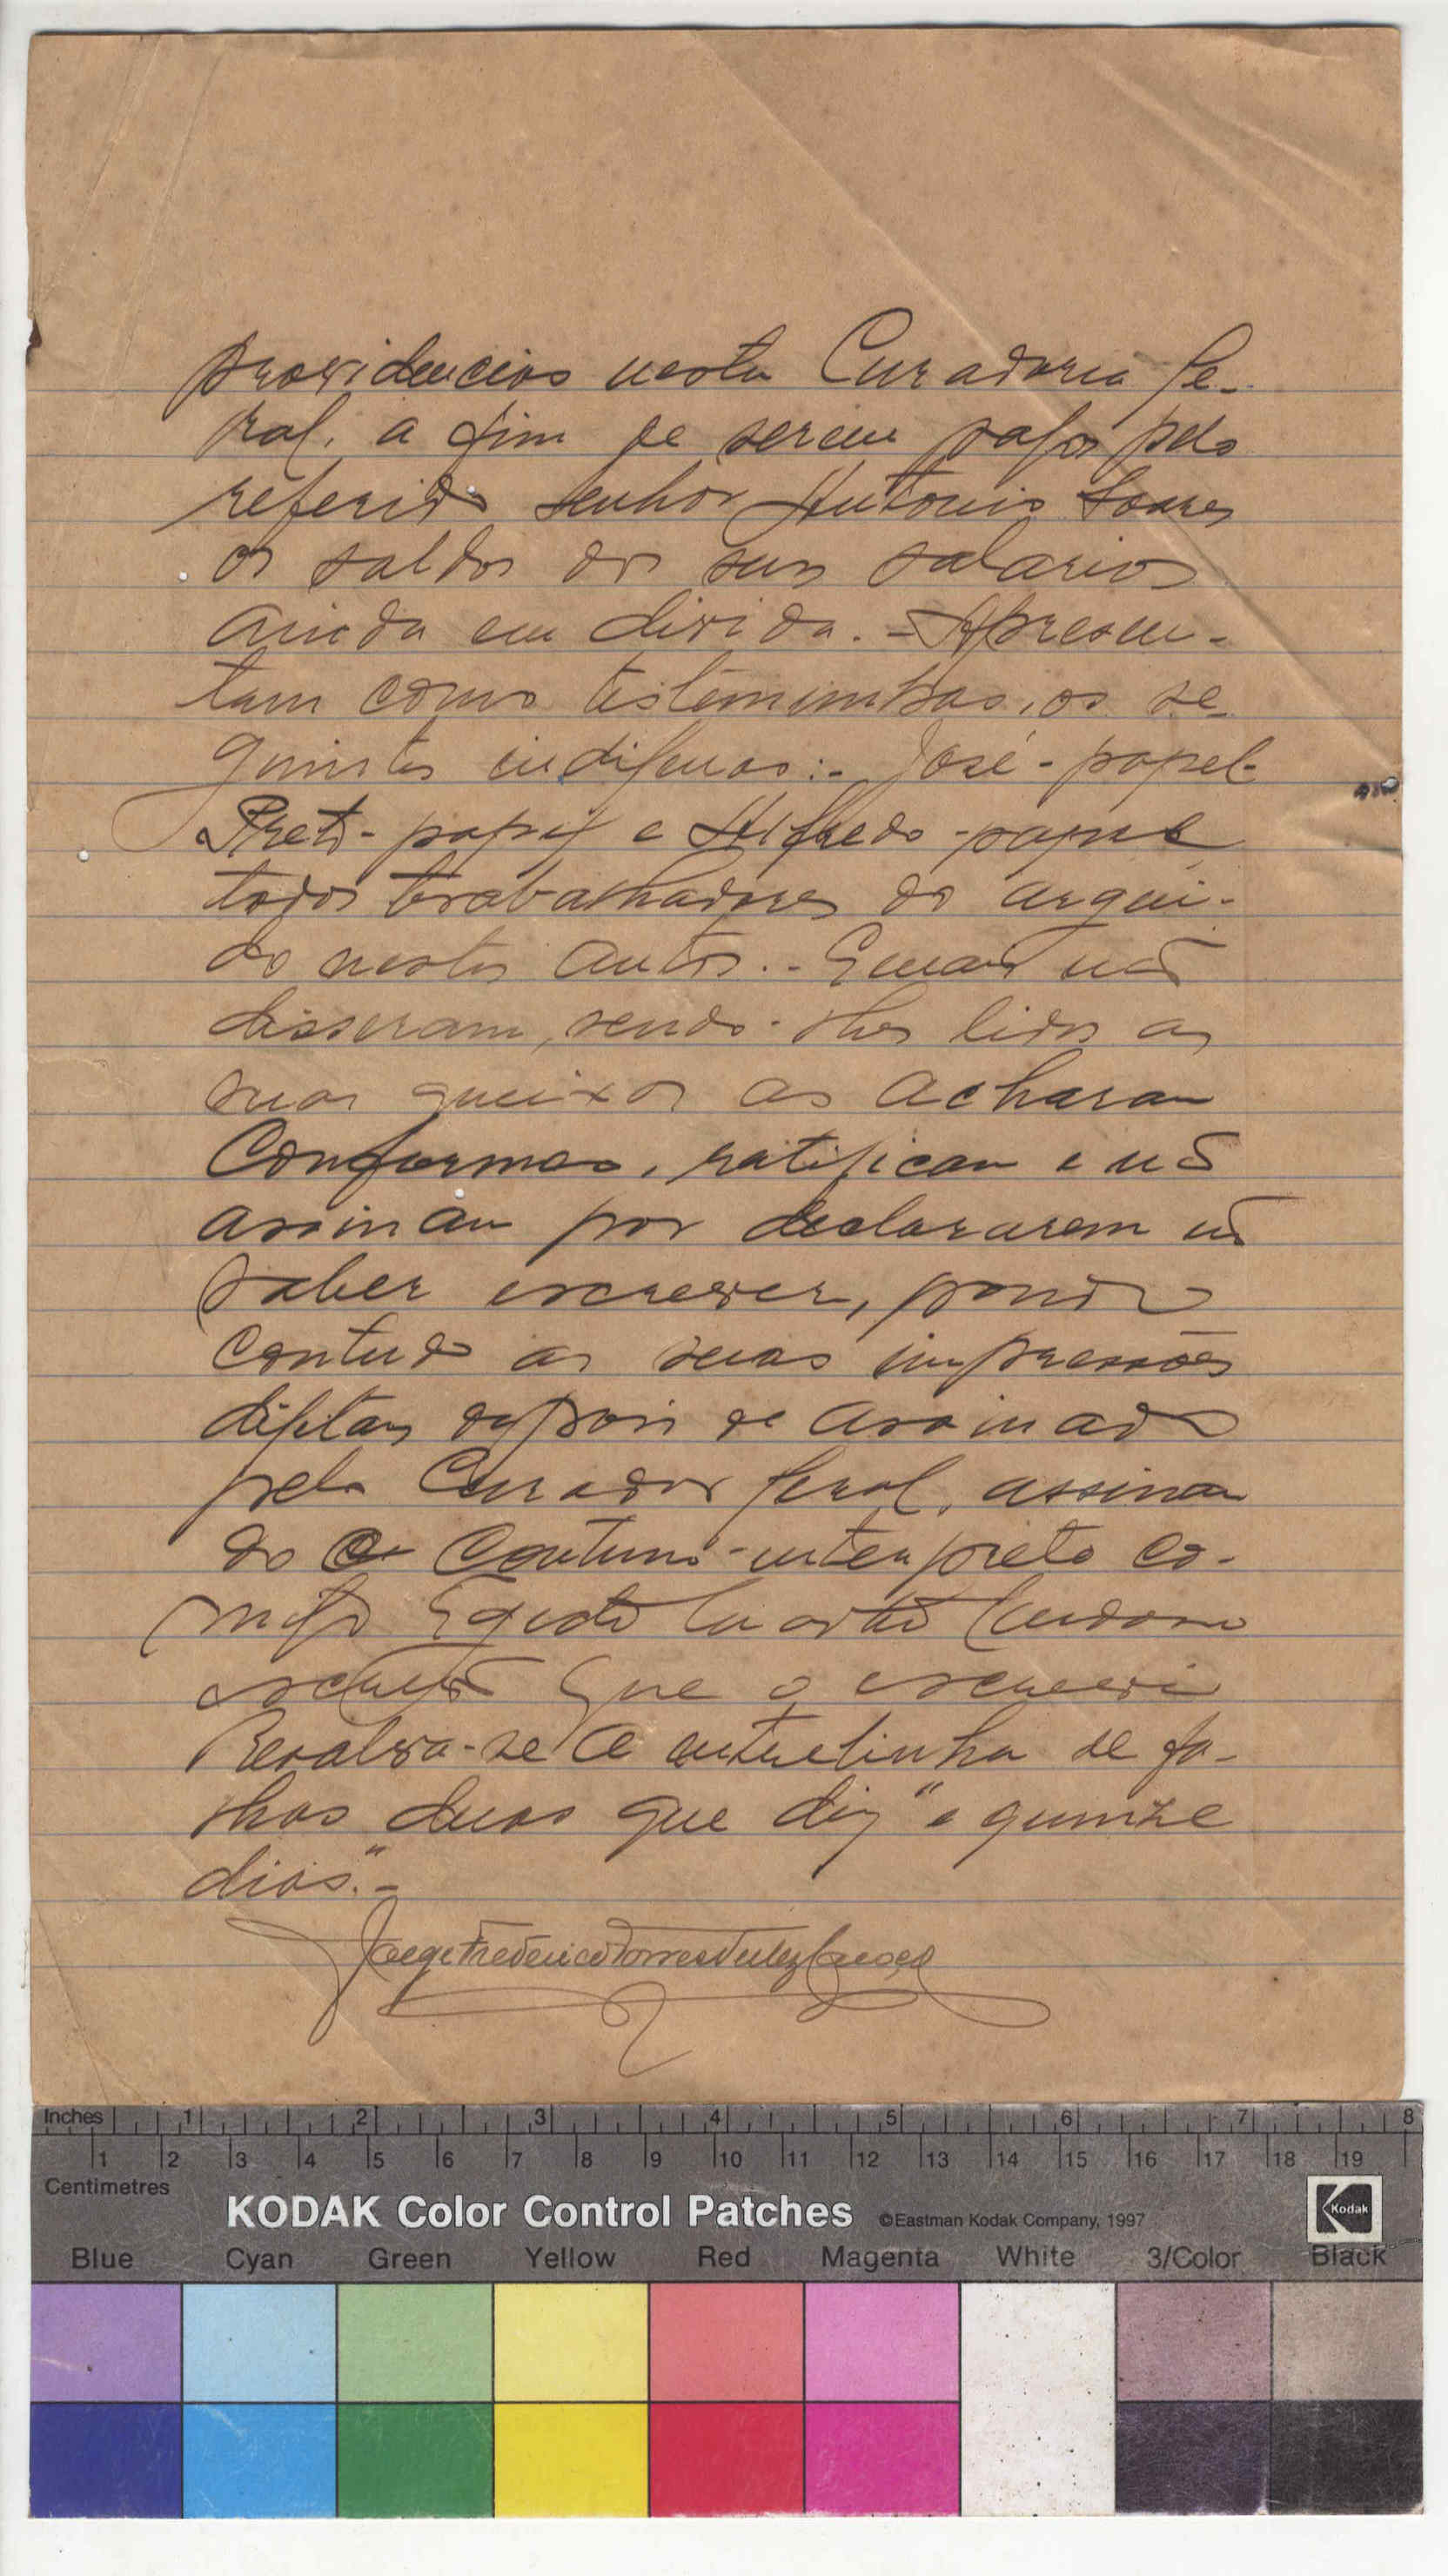 providencias nesta Curadoria Ge-
ral, a fim de serem pagos pelo
referido senhor Antonio Soares
os saldos dos seus salarios
ainda em divida. - Apresen-
tam como testemunhas, os se-
guintes indigenas:- José - papel-
Preto - papel e Alfredo - papel
todos trabalhadores do argui-
do nestes autos. - E mais não
disseram, sendo-lhes lidos as
suas queixas as acharam
conformes, ratificam e não
assinam por declararem não
saber escrever, pondo
contudo as suas impressões
digitais depois de assinado
pelo Curador Geral, assinan
do o contumo-interprete co-
migo Cardoso
escrivão que o escrevi
Resalva-se a entrelinha de fo-
lhas duas que diz "e quinze
dias." -
Jorge Frederico Torres Velez Caroço
Inches 1 2 3 4 5 6 7 8
1 2 3 4 5 6 7 8 9 10 11 12 13 14 15 16 17 18 19
Centimetres
KODAK Color Control Patches ©Eastman Kodak Company, 1997 Kodak
Blue Cyan Green Yellow Red Magenta White 3/Color Black